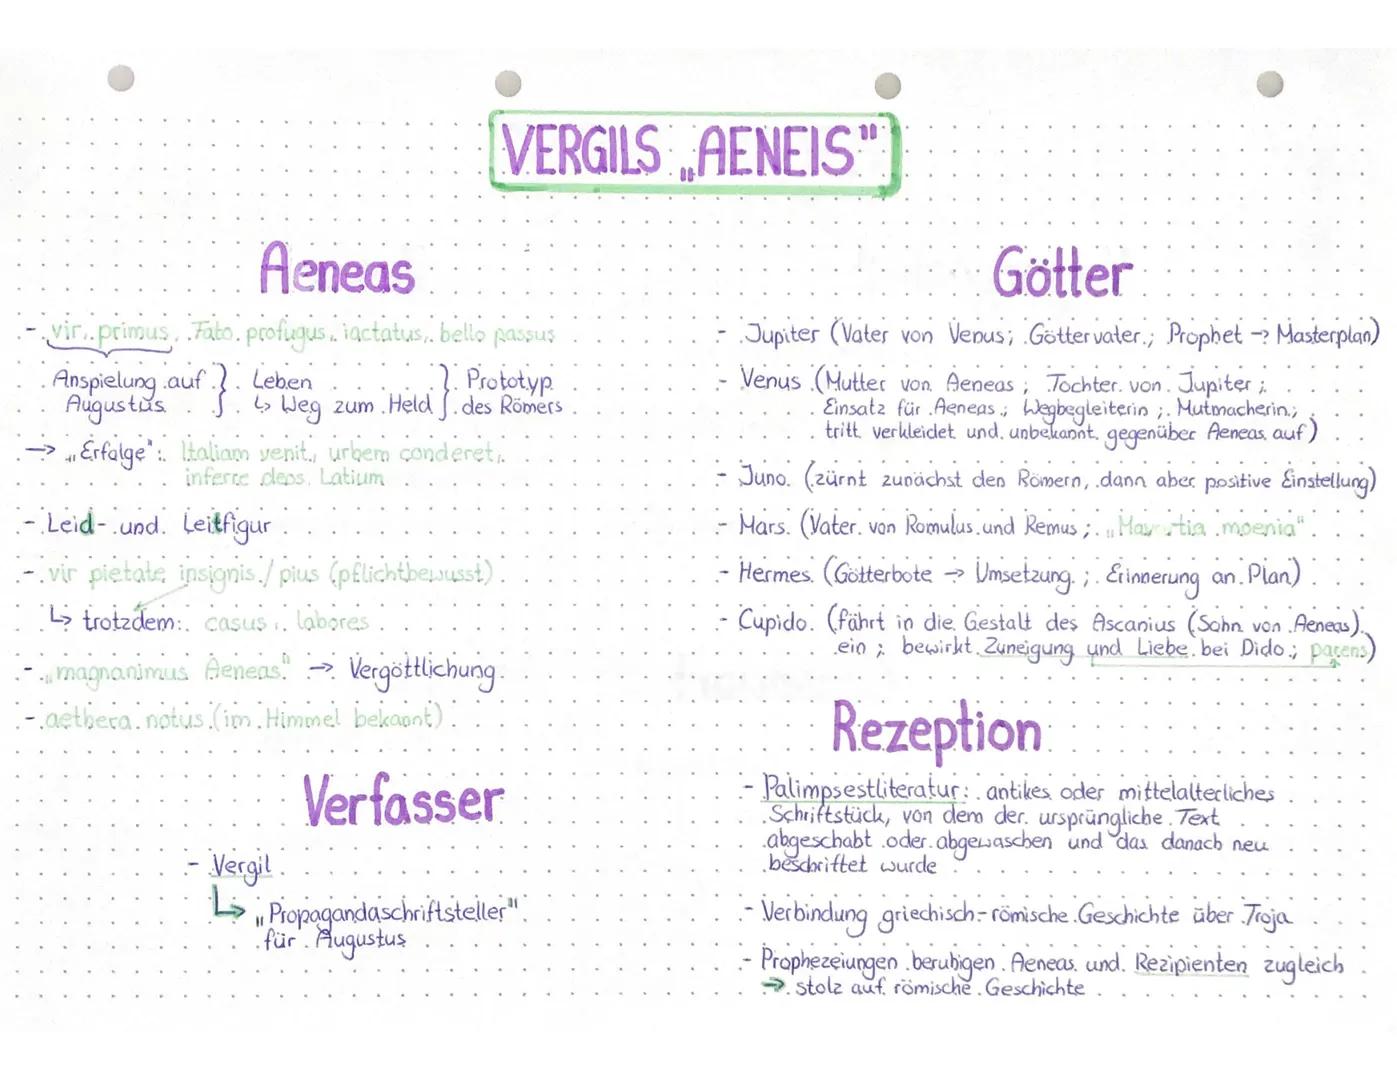 VERGILS „AENEIS"
Aeneas
- vir, primus, Fato profugus, iactatus, bello passus
Anspielung auf Augustus } Leben ↳ Weg zum Held } Prototyp des Römers
→ „Erfolge": Italiam venit, urbem conderet,
inferre deos Latium
- Leid- und Leitfigur
- vir pietate insignis / pius (pflichtbewusst)
↳ trotzdem: casus, labores
- „magnanimus Aeneas" → Vergöttlichung
- aethera notus (im Himmel bekannt)
Verfasser
- Vergil
↳ „Propagandaschriftsteller"
für Augustus
Götter
- Jupiter (Vater von Venus; Göttervater; Prophet → Masterplan)
- Venus (Mutter von Aeneas; Tochter von Jupiter;
Einsatz für Aeneas; Wegbegleiterin; Mutmacherin;
tritt verkleidet und unbekannt gegenüber Aeneas auf)
- Juno (zürnt zunächst den Römern, dann aber positive Einstellung)
- Mars (Vater von Romulus und Remus; „Mavortia moenia"
- Hermes (Götterbote → Umsetzung; Erinnerung an Plan)
- Cupido (fährt in die Gestalt des Ascanius (Sohn von Aeneas)
ein; bewirkt Zuneigung und Liebe bei Dido; parens)
Rezeption
- Palimpsestliteratur: antikes oder mittelalterliches
Schriftstück, von dem der ursprüngliche Text
abgeschabt oder abgewaschen und das danach neu
beschriftet wurde
- Verbindung griechisch-römische Geschichte über Troja
- Prophezeiungen beruhigen Aeneas und Rezipienten zugleich
→ stolz auf römische Geschichte